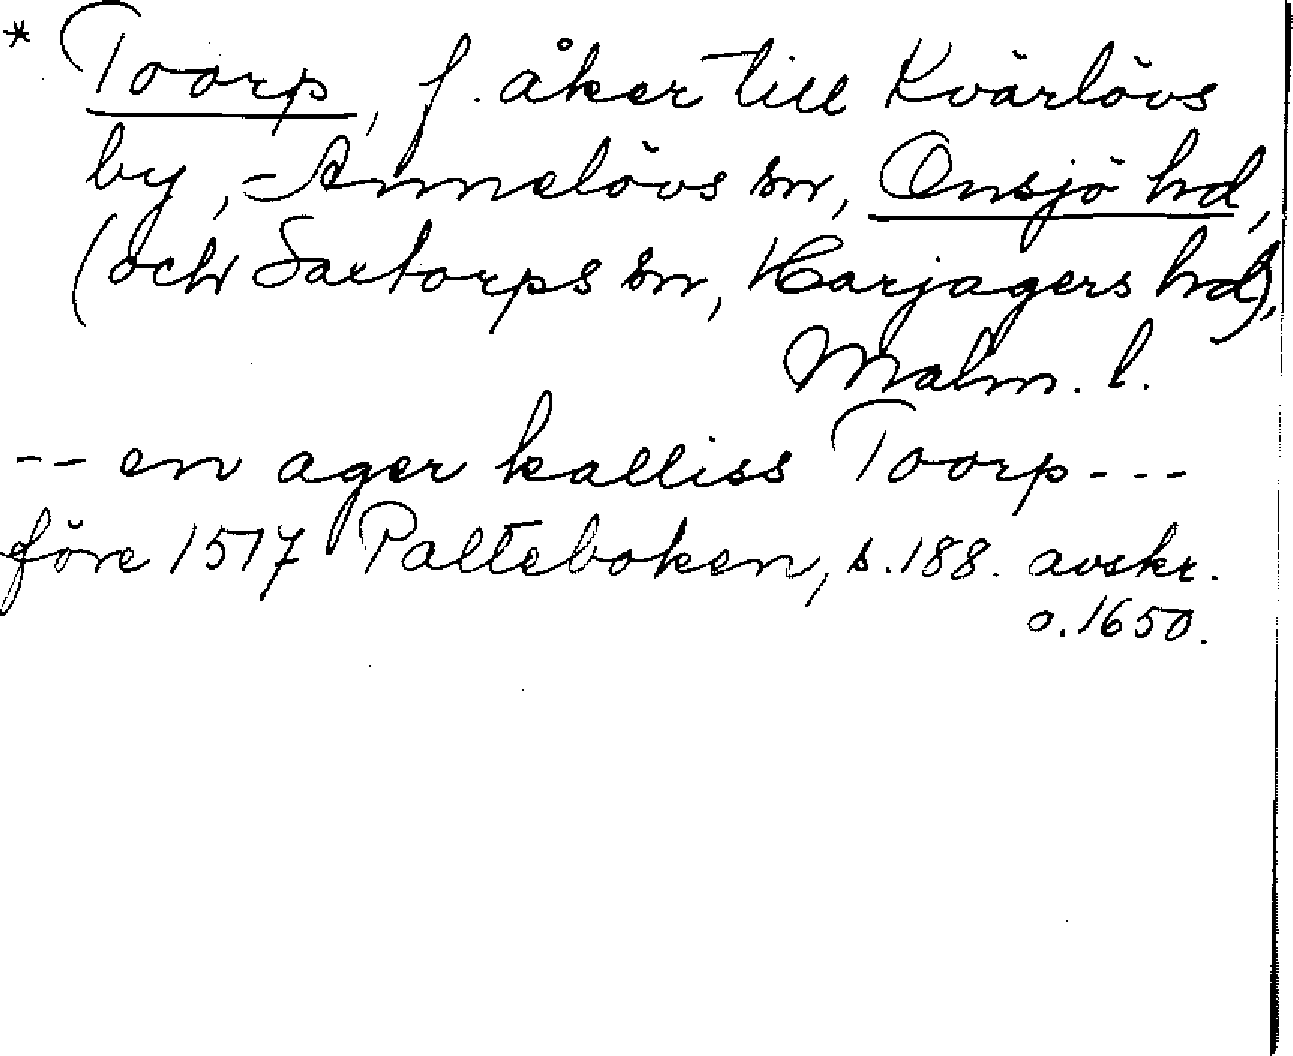 * Toorp, f. åker till Kvärlövs
by, Annelövs sn, Onsjö hd,
(och Saxtorps sn, Harjagers hd),
Malm. l.
-- en ager kalliss Toorp ---
före 1517 Palteboken, s. 188. avskr.
o. 1650.